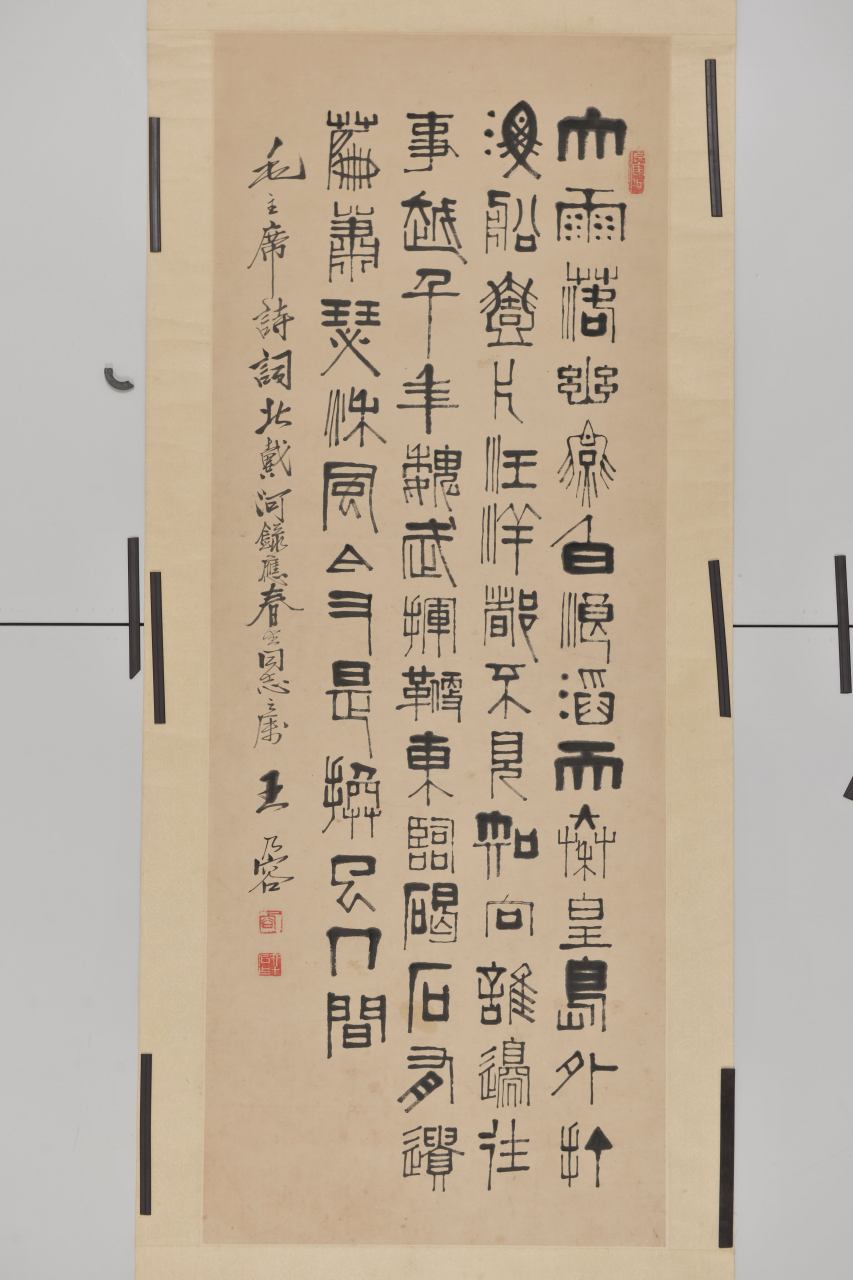 大雨落幽燕白浪滔天秦皇島外打
漁船壹片汪洋都不見知向誰邊往
事越千年魏武揮鞭東臨碣石有遺
篇蕭瑟秋風今又是換了人間
毛主席詩詞北戴河錄應春同志之属 王乃容